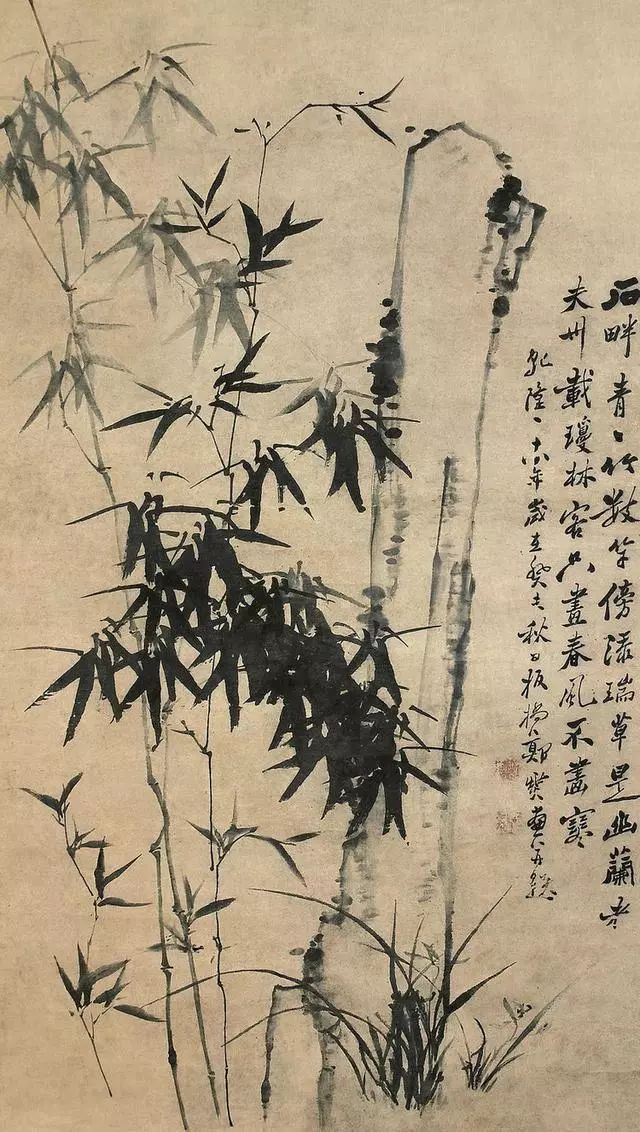 石畔青〻竹數竿傍添瑞草是幽蘭老
夫卅載瓊林客只畫春風不畫寒
乾隆二十八年歲在癸未秋日板橋鄭燮畫并題